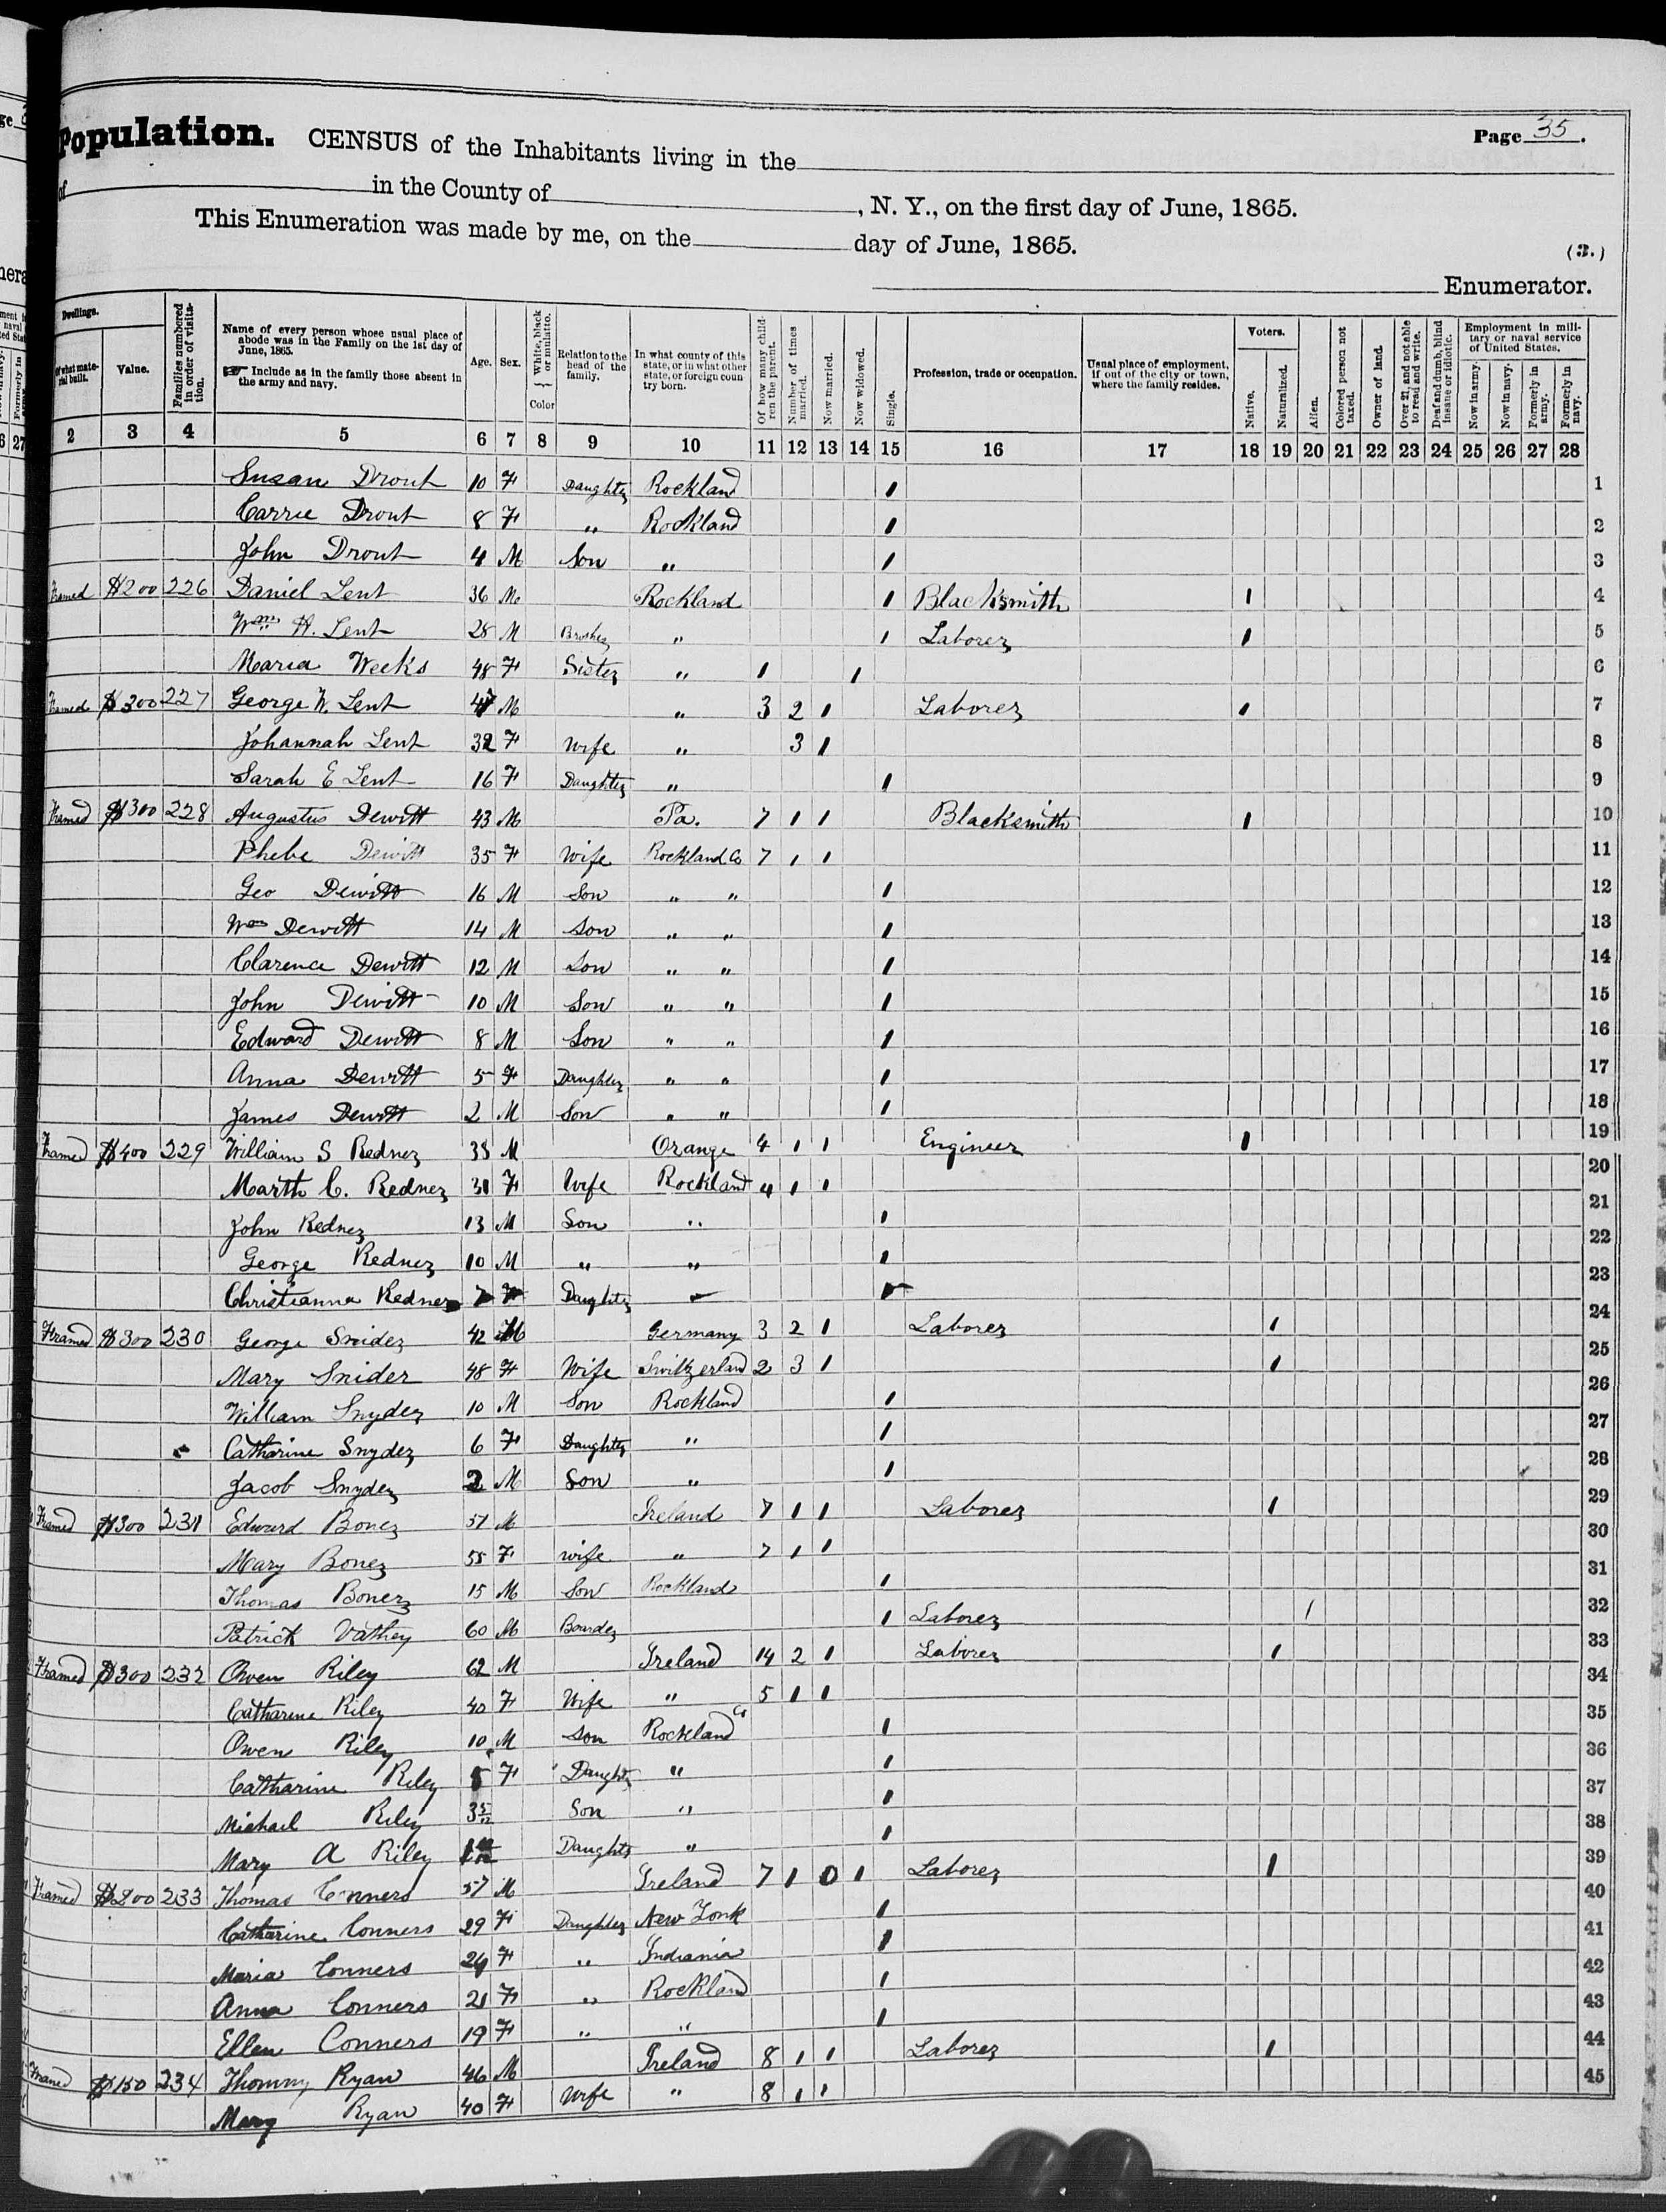 Population. CENSUS of the Inhabitants living in the Page 35.
of in the County of , N. Y., on the first day of June, 1865.
This Enumeration was made by me, on the day of June, 1865. (3.)
Enumerator.
Dwellings. Of what material built. Value. Families numbered in order of visitation. Name of every person whose usual place of abode was in the Family on the 1st day of June, 1865. Include as in the family those absent in the army and navy. Age. Sex. White, black or mulatto. Color Relation to the head of the family. In what county of this state, or in what other state, or foreign coun try born. Of how many children the parent. Number of times married. Now married. Now widowed. Single. Profession, trade or occupation. Usual place of employment, if out of the city or town, where the family resides. Voters. Native. Naturalized. Alien. Colored person not taxed. Owner of land. Over 21, and not able to read and write. Deaf and dumb, blind insane or idiotic. Employment in military or naval service of United States. Now in army. Now in navy. Formerly in army. Formerly in navy.
2 3 4 5 6 7 8 9 10 11 12 13 14 15 16 17 18 19 20 21 22 23 24 25 26 27 28
Susan Drout 10 F Daughter Rockland 1 1
Carrie Drout 8 F " Rockland 1 2
John Drout 4 M Son " 1 3
Framed $200 226 Daniel Lent 36 M Rockland 1 Blacksmith 1 4
Wm H. Lent 28 M Brother " 1 Laborer 1 5
Maria Weeks 48 F Sister " 1 1 6
Framed $300 227 George W. Lent M " 3 2 1 Laborer 1 7
Johannah Lent 32 F Wife " 3 1 8
Sarah E Lent 16 F Daughter " 1 9
Framed $300 228 Augustus Dewitt 43 M Pa. 7 1 1 Blacksmith 1 10
Phebe Dewitt 35 F Wife Rockland Co 7 1 1 11
Geo Dewitt 16 M Son " " 1 12
Wm Dewitt 14 M Son " " 1 13
Clarence Dewitt 12 M Son " " 1 14
John Dewitt 10 M Son " " 1 15
Edward Dewitt 8 M Son " " 1 16
Anna Dewitt 5 F Daughter " " 1 17
James Dewitt 2 M Son " " 1 18
Framed $400 229 William S Redner M Orange 4 1 1 Engineer 1 19
Marth C. Redner 31 F Wife Rockland 4 1 1 20
John Redner 13 M Son " 1 21
George Redner 10 M " " 1 22
Christianna Redner 7 F Daughter " 1 23
Framed $300 230 George Snider 42 M Germany 3 2 1 Laborer 1 24
Mary Snider 48 F Wife Switzerland 2 3 1 1 25
William Snyder 10 M Son Rockland 1 26
Catharine Snyder 6 F Daughter " 1 27
Jacob Snyder 2 M Son " 1 28
Framed $300 231 Edward Boner 51 M Ireland 7 1 1 Laborer 1 29
Mary Boner 55 F wife " 7 1 1 30
Thomas Boner 15 M Son Rockland 1 31
Patrick Vathey 60 M Boarder 1 Laborer 1 32
Framed $300 232 Owen Riley 62 M Ireland 14 2 1 Laborer 1 33
Catharine Riley 40 F Wife " 5 1 1 34
Owen Riley 10 M Son Rockland Co 1 35
Catharine Riley F Daughter " 1 36
Michael Riley 3 5/12 Son " 1 37
Mary A Riley Daughter " 1 38
Framed $200 233 Thomas Conners 57 M Ireland 7 1 0 1 Laborer 1 39
Catharine Conners 29 F Daughter New York 1 40
Maria Conners 24 F " Indiania 1 41
Anna Conners 21 F " Rockland 1 42
Ellen Conners 19 F " " 1 43
Framed $150 234 Thommy Ryan 46 M Ireland 8 1 1 Laborer 1 44
Mary Ryan 40 F Wife " 8 1 1 45